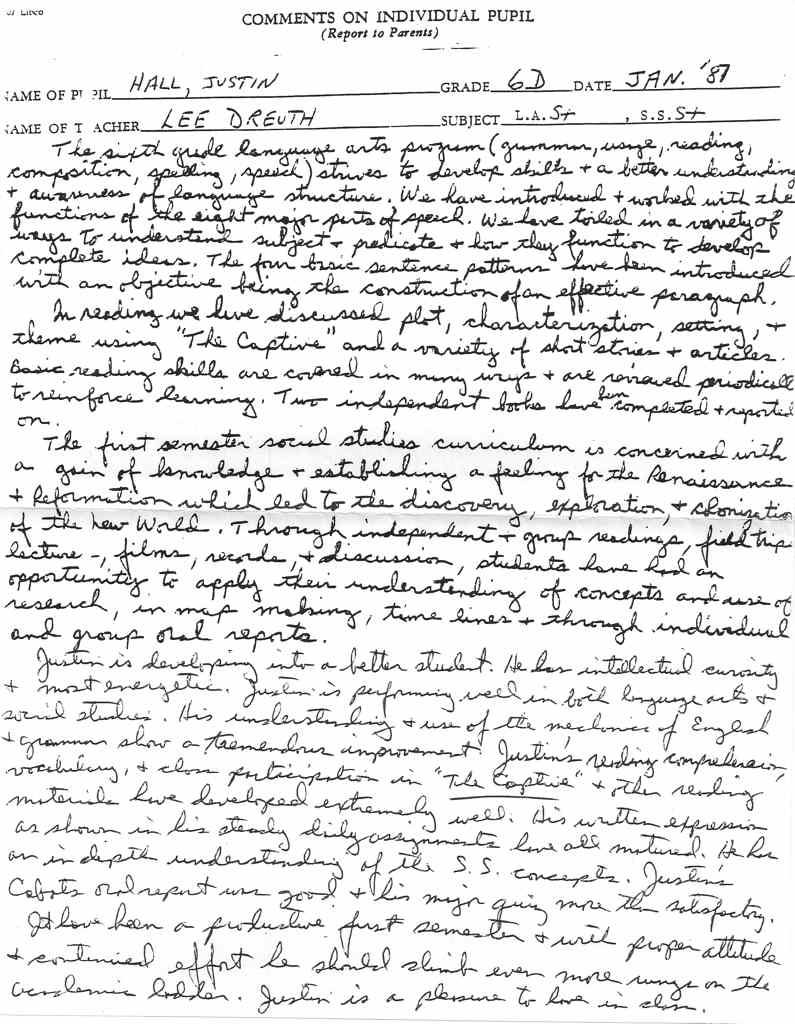 COMMENTS ON INDIVIDUAL PUPIL
(Report to Parents)
NAME OF PUPIL HALL, JUSTIN GRADE 6D DATE JAN. '87
NAME OF TEACHER LEE DREUTH SUBJECT L.A. S+ , S.S. S+
The sixth grade language arts program (grammar, usage, reading,
composition, spelling, speech) strives to develop skills + a better understanding
+ awareness of language structure. We have introduced + worked with the
functions of the eight major parts of speech. We have toiled in a variety of
ways to understand subject + predicate + how they function to develop
complete ideas. The four basic sentence patterns have been introduced
with an objective being the construction of an effective paragraph.
In reading we have discussed plot, characterization, setting, +
theme using "The Captive" and a variety of short stories + articles.
Basic reading skills are covered in many ways + are reviewed periodicall
to reinforce learning. Two independent books have been completed + reported
on.
The first semester social studies curriculum is concerned with
a gain of knowledge + establishing a feeling for the Renaissance
+ Reformation which led to the discovery, exploration, + colonizatio
of the New World. Through independent + group readings, field trip
lecture-, films, records, + discussion, students have had an
opportunity to apply their understanding of concepts and use of
research, in map making, time lines + through individual
and group oral reports.
Justin is developing into a better student. He has intellectual curiosity
+ most energetic. Justin is performing well in both language arts +
social studies. His understanding + use of the mechanics of English
+ grammar show a tremendous improvement. Justin's reading comprehension,
vocabulary, + class participation in "The Captive" + other reading
materials have developed extremely well. His written expression
as shown in his steady daily assignments have all matured. He has
an in depth understanding of the S.S. concepts. Justin's
Cabots oral report was good + his major quiz more than satisfactory.
It have been a productive first semester + with proper attitude
+ continued effort he should climb even more rungs on the
academic ladder. Justin is a pleasure to have in class.